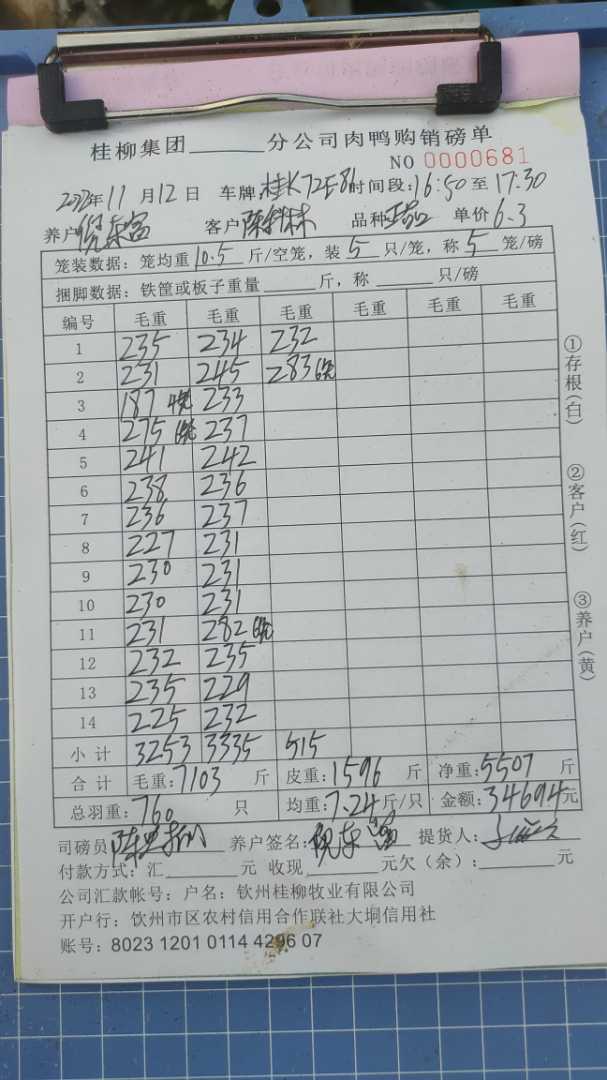 桂柳集团______分公司肉鸭购销磅单
NO 0000681
2023年11月12日 车牌:桂K72E86 时间段:16:50至17:30
养户 倪东富 客户 品种 单价6.3
笼装数据:笼均重10.5斤/空笼,装5只/笼,称5笼/磅
捆脚数据:铁筐或板子重量______斤,称______只/磅
编号 毛重 毛重 毛重 毛重 毛重 毛重
1 235 234 232
2 231 245 283 6笼
3 187 4笼 233
4 275 6笼 237
5 241 242
6 238 236
7 236 237
8 227 231
9 230 231
10 230 231
11 231 282 6笼
12 232 235
13 235 229
14 225 232
小计 3253 3335 515
合计 毛重:7103斤 皮重:1596斤 净重:5507斤
总羽重:760只 均重:7.24斤/只 金额:34694元
司磅员 养户签名:倪东富 提货人:
付款方式:汇______元 收现______元欠(余):______元
公司汇款帐号:户名:钦州桂柳牧业有限公司
开户行:饮州市区农村信用合作联社大垌信用社
账号:8023 1201 0114 4296 07
①存根(白)
②客户(红)
③养户(黄)